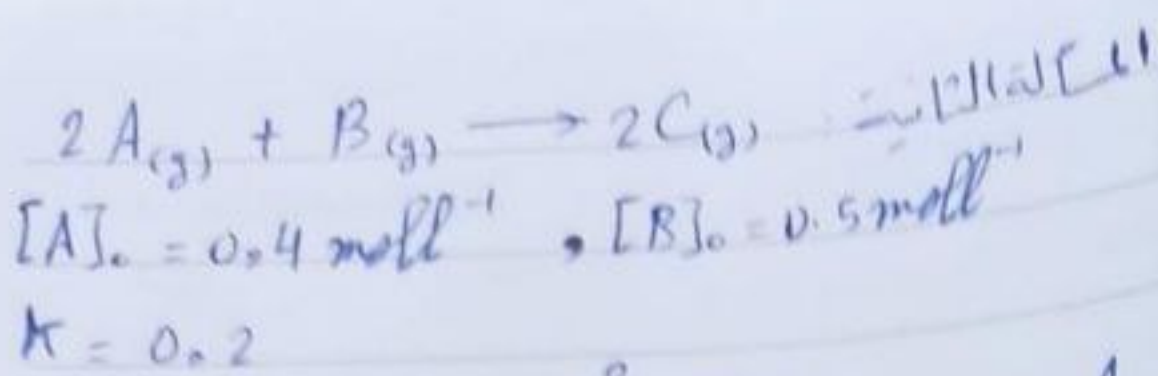 2A(g) + B(g) → 2C(g)
[A]₀ = 0.4 moll⁻¹ , [B]₀ = 0.5 moll⁻¹
K = 0.2